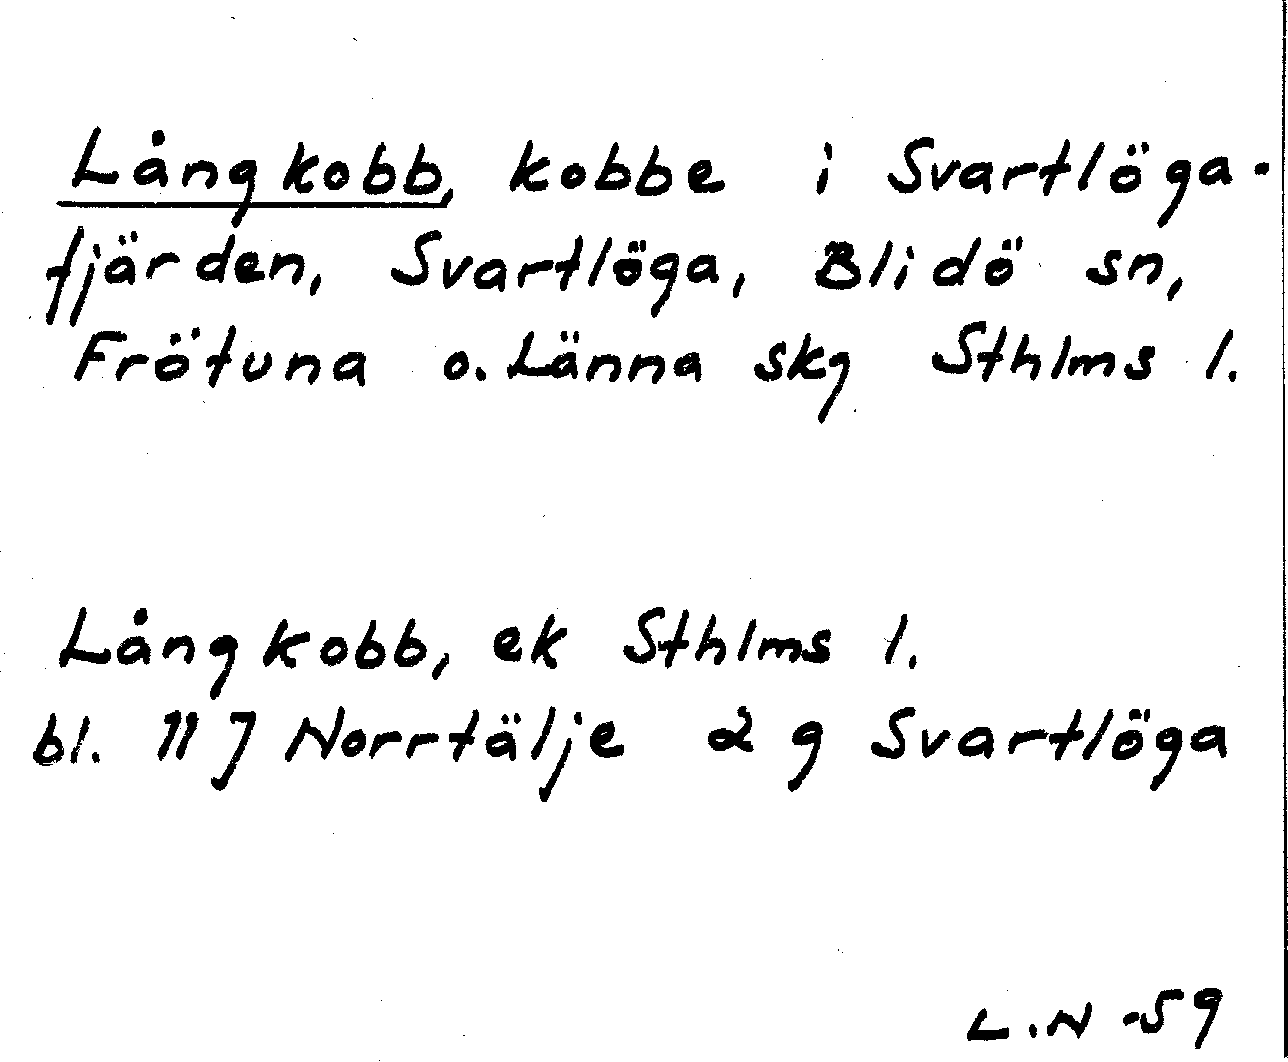 Långkobb, kobbe i Svartlöga-
fjärden, Svartlöga, Blidö sn,
Frötuna o. Länna skg Sthlms l.
Långkobb, ek Sthlms l.
bl. 11 J Norrtälje 2 g Svartlöga
L.N -59